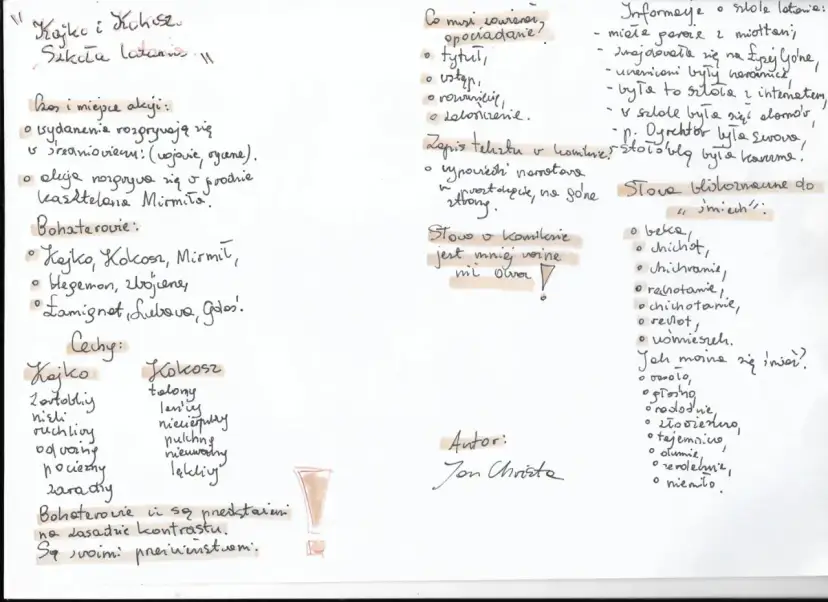 "Kajko i Kokosz
Szkoła latania"
Czas i miejsce akcji:
wydarzenia rozgrywają się
w średniowieczu: (wojowie, rycerze).
akcja rozgrywa się w grodzie
kasztelana Mirmiła.
Bohaterowie:
Kajko, Kokosz, Mirmił,
Hegemon, zbójcerze,
Łamignat, Lubawa, Gdoś.
Cechy:
Kajko
żartobliwy
niski
ruchliwy
odważny
pocieszny
zaradny
Kokosz
łakomy
leniwy
niecierpliwy
pulchny
nieuważny
lękliwy
Bohaterowie ci są przedstawieni
na zasadzie kontrastu.
Są swoimi przeciwieństwami.
Co musi zawierać
opowiadanie?
tytuł,
wstęp,
rozwinięcie,
zakończenie.
Zapis tekstu w komiksie:
wypowiedź narratora
w prostokącie, na górze
strony.
Słowo w komiksie
jest mniej ważne
niż obraz!
Autor:
Jan Christa
Informacje o szkole latania:
- miała parcie z miotłami,
- znajdowała się na Łysej Górze,
- uczennicami były czarownice,
- była to szkoła z internatem,
- w szkole była sieć domów,
- p. Dyrektor była surowa,
- stołówką była karczma.
Słowa bliskoznaczne do
"śmiech":
beka,
chichot,
chichranie,
rechotanie,
chichotanie,
rechot,
uśmieszek.
Jak można się śmiać?
wesoło,
głośno,
radośnie,
złowieszczo,
tajemniczo,
dumnie,
serdecznie,
niemiło.